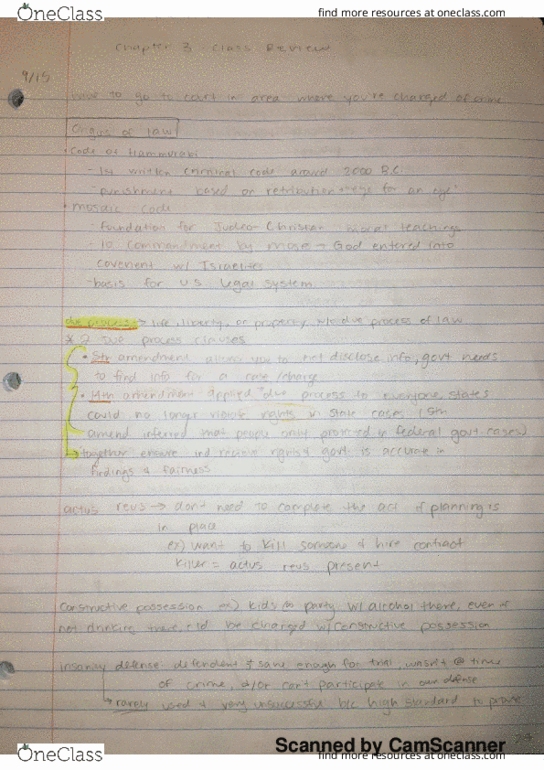 OneClass
find more resources at oneclass.com
Chapter 3 Class Review
9/15
have to go to court in area where you're charged of crime
Origins of law
• Code of Hammurabi
- 1st written criminal code around 2000 B.C.
- punishment based on retribution "eye for an eye"
• mosaic code
- foundation for Judeo-Christian moral teachings
- 10 by mose → God entered into
covenent w/ Israelites
- basis for U.S. legal system
due process → life, liberty, or property w/o due process of law
* 2 Due process clauses
• 5th amendment allows you to not disclose info, govt needs
to find info for a case/charge
• 14th amendment applied "due process to everyone, states
could no longer rights in state cases (5th
amend inferred that people only in federal govt cases)
→ together ensure ind recieve rights & govt is accurate in
findings & fairness
actus reus → don't need to complete the act if planning is
in place
ex) want to kill someone & hire contract
killer = actus reus present
Constructive possession ex) kids @ party w/ alcohol there, even if
not drinking be charged w/ constructive possession
insanity defense defendent sane enough for trial, wasn't @ time
of crime, &/or can't participate in own defense
→ rarely used & very unsuccessful b/c high standard to prove
Scanned by CamScanner
OneClass
find more resources at oneclass.com